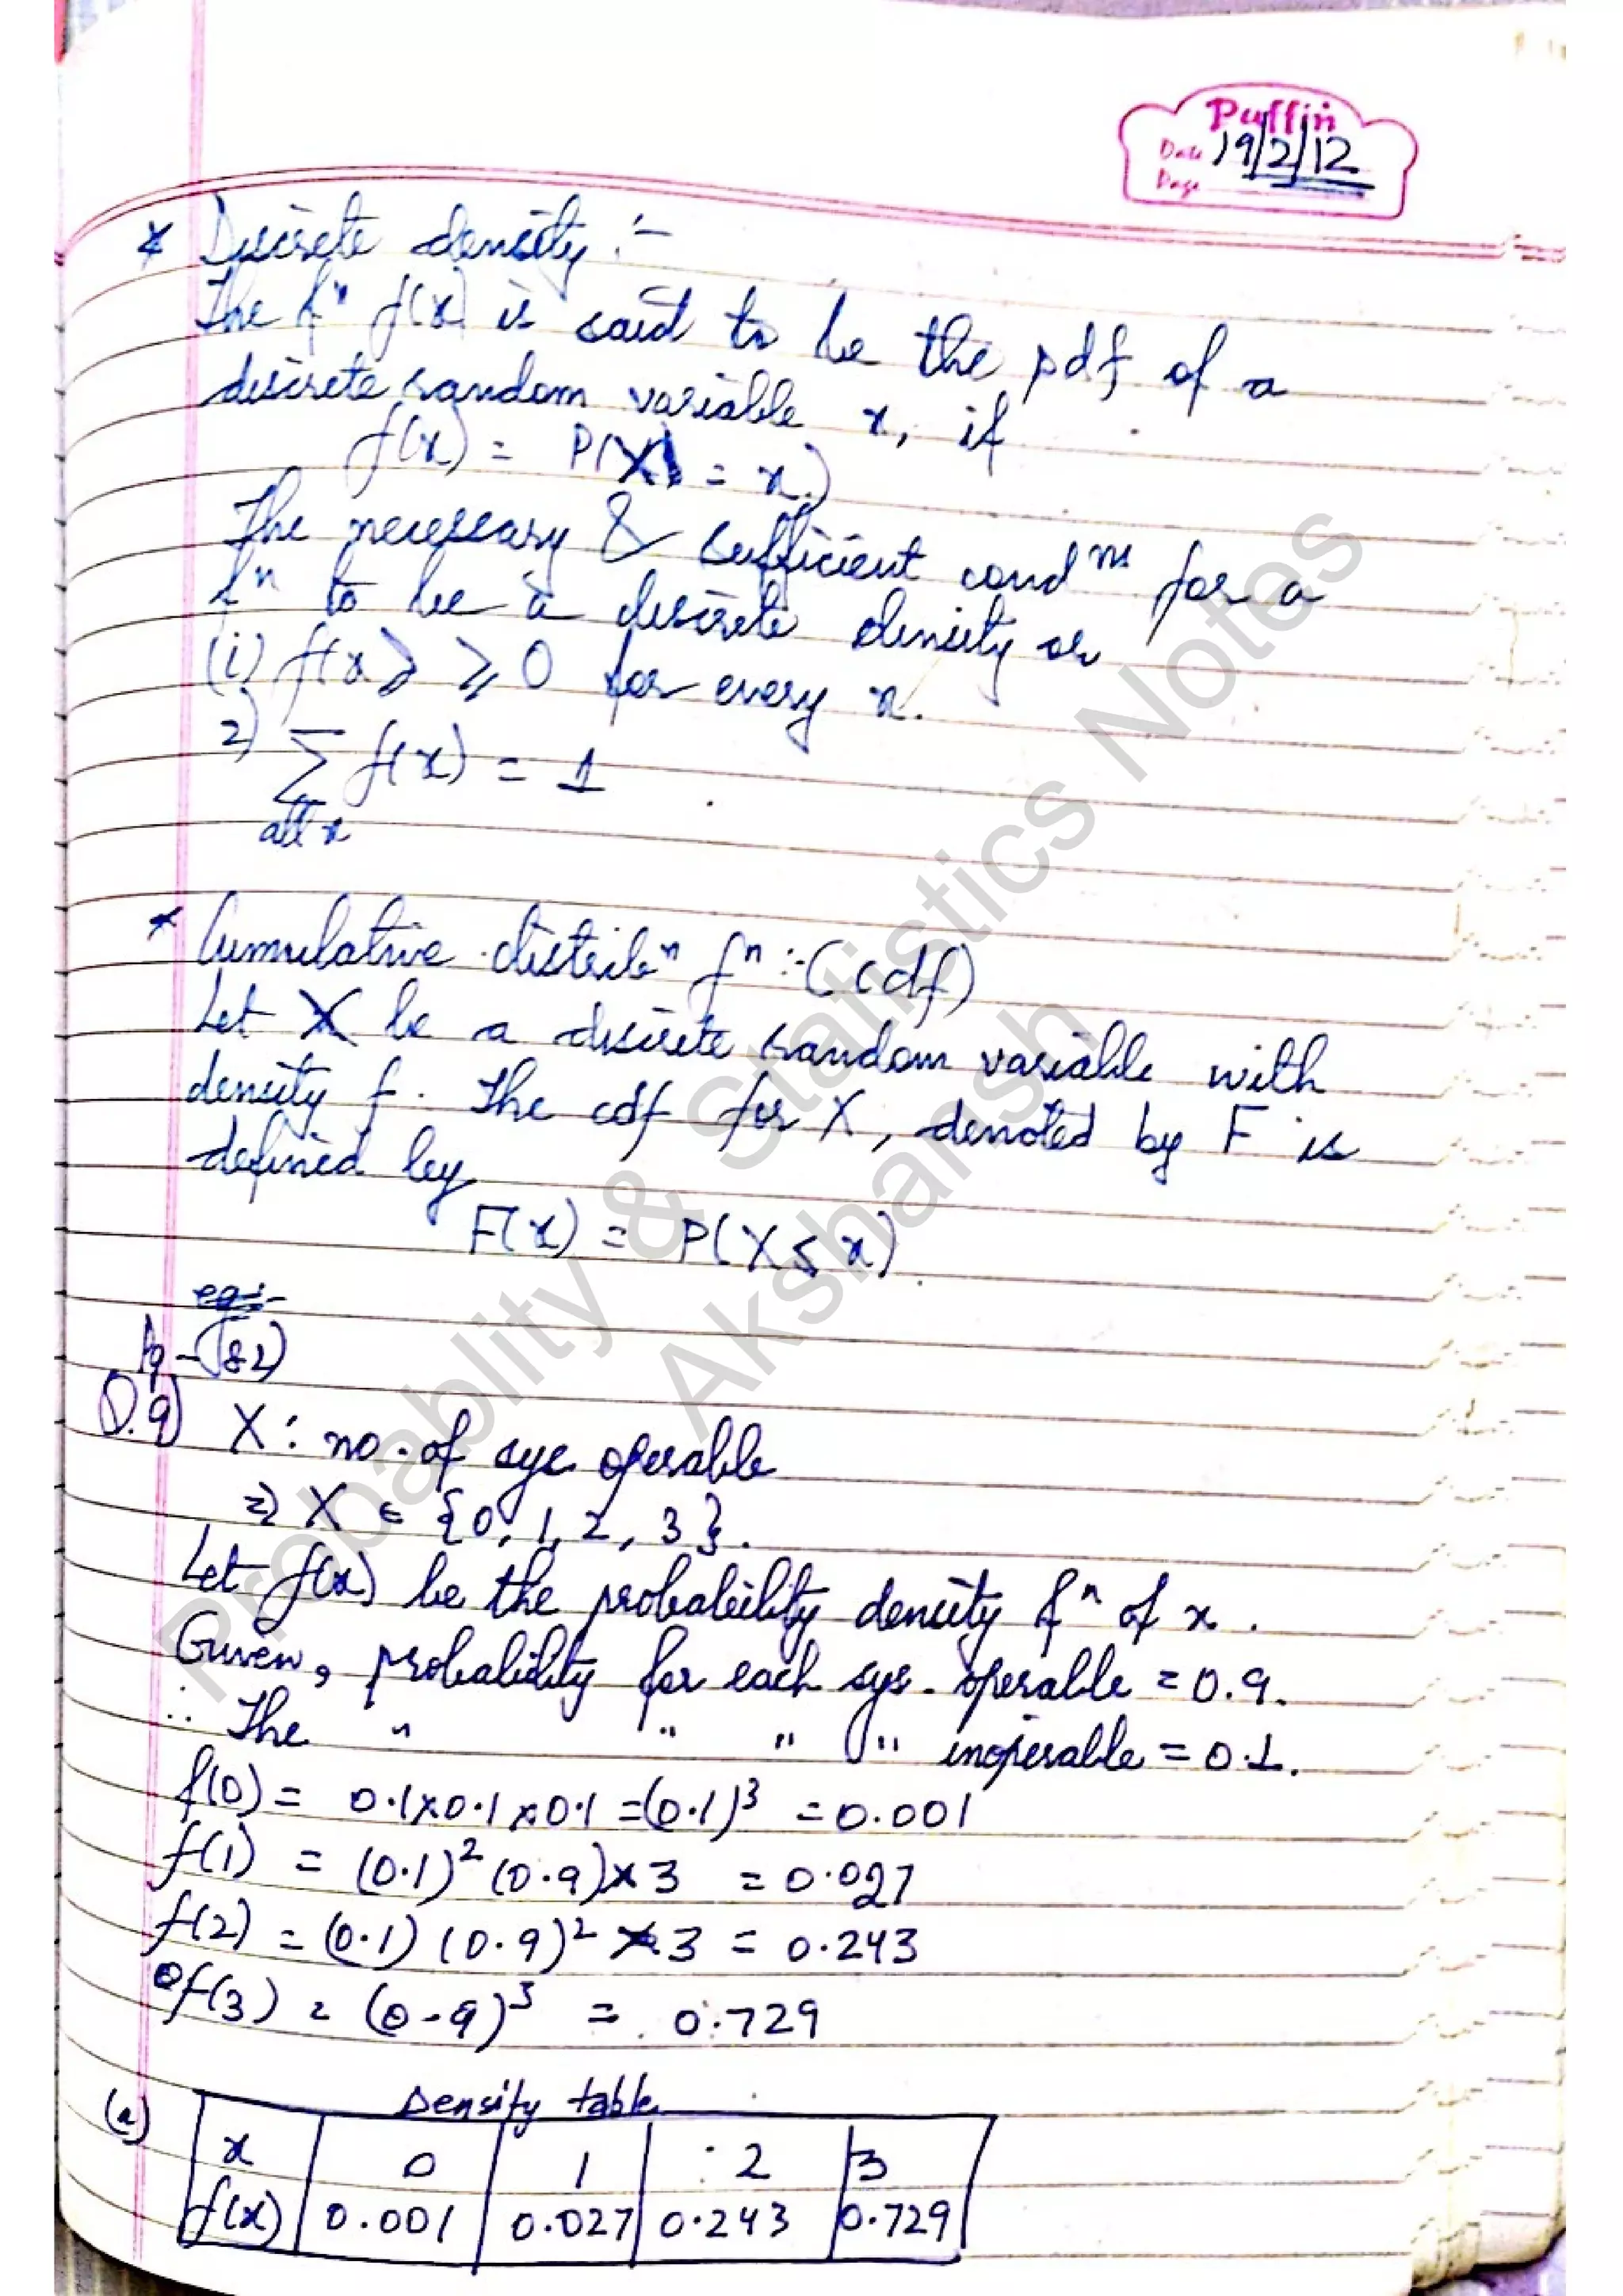 Puffin
Date 19/2/12
Page
* Discrete density :-
The fⁿ f(x) is said to be the pdf of a
discrete random variable x, if
f(x) = P(X = x)
The necessary & sufficient condⁿˢ for a
fⁿ to be a discrete density are
(i) f(x) ≥ 0 for every x.
2) ∑ f(x) = 1
all x
* Cumulative distribⁿ fⁿ :- (cdf)
Let X be a discrete random variable with
density f. The cdf for X, denoted by F is
defined by
F(x) = P(X ≤ x)
eg:-
Pg - 82)
Q.9) X : no. of sys operable
⇒ X ∈ {0, 1, 2, 3}.
Let f(x) be the probability density fⁿ of x.
Given, probability for each sys. operable = 0.9.
∴ The " " " " inoperable = 0.1.
f(0) = 0.1 x 0.1 x 0.1 = (0.1)³ = 0.001
f(1) = (0.1)² (0.9) x 3 = 0.027
f(2) = (0.1) (0.9)² x 3 = 0.243
f(3) = (0.9)³ = 0.729
(a) Density table
x 0 1 2 3
f(x) 0.001 0.027 0.243 0.729
Probablity & Statistics Notes
Aksharsh